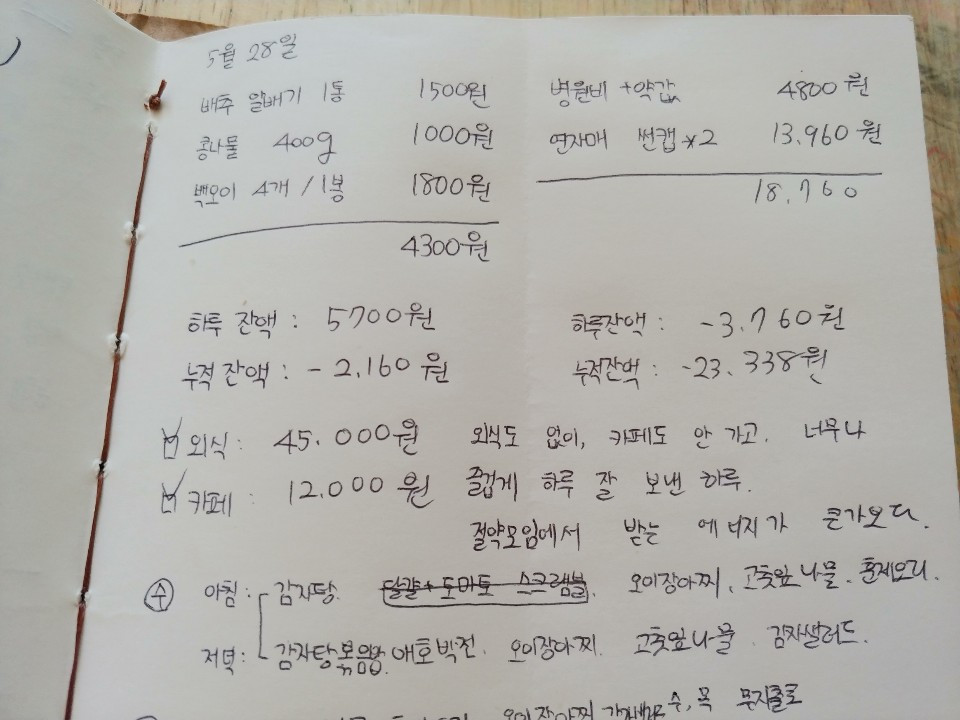 5월 28일
배추 알배기 1통 1500원
콩나물 400g 1000원
백오이 4개 / 1봉 1800원
4300원
병원비 + 약값 4800원
연자매 썬캡*2 13,960원
18,760
하루 잔액 : 5700원
누적 잔액 : -2,160원
하루잔액 : -3,760원
누적잔액 : -23,338원
외식 : 45,000원
카페 : 12,000원
외식도 없이, 카페도 안 가고, 너무나
즐겁게 하루 잘 보낸 하루.
절약모임에서 받는 에너지가 큰가보다.
수 아침 : 감자탕. 달걀+토마토 스크램블. 오이장아찌, 고춧잎나물. 훈제오리.
저녁 : 감자탕볶음밥. 애호박전. 오이장아찌. 고춧잎나물. 감자샐러드.
오이장아찌 수, 목